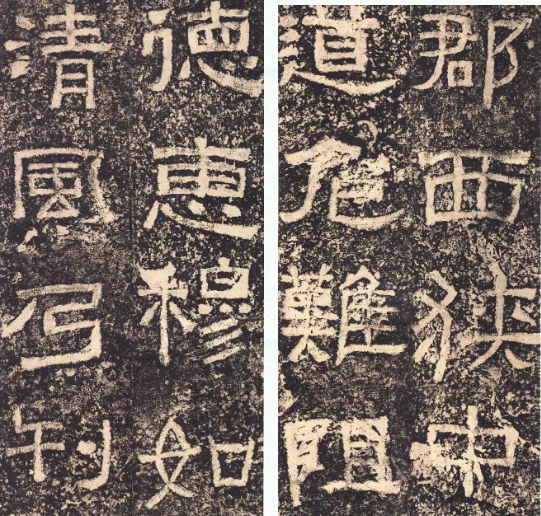 郡西狹中
道危難阻
德惠穆如
清風乃刊